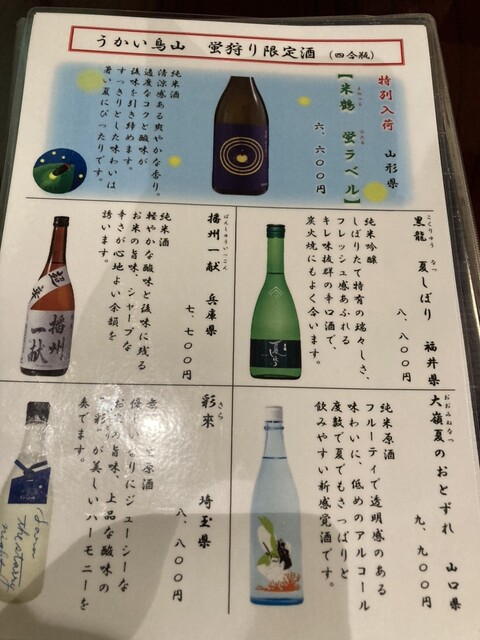 うかい鳥山　蛍狩り限定酒（四合瓶）
特別入荷　山形県
よねつる　ほたる
【米鶴　蛍ラベル】
六、六〇〇円
純米酒
清涼感ある爽やかな香り。
適度なコクと酸味が
後味を引き締めます。
すっきりとした味わいは
暑い夏にぴったりです。
こくりゅう　なつ
黒龍　夏しぼり　福井県
八、八〇〇円
純米吟醸
しぼりたて特有の瑞々しさ、
フレッシュ感あふれる
キレ味抜群の辛口酒で、
炭火焼にもよく合います。
ばんしゅういっこん
播州一献　兵庫県
七、七〇〇円
純米酒
軽やかな酸味と後味に残る
お米の旨味、シャープな
辛さが心地よい余韻を
誘います。
超辛
播州一献
おおみねなつ
大嶺夏のおとずれ　山口県
九、九〇〇円
純米原酒
フルーティで透明感のある
味わいに、低めのアルコール
度数で夏でもさっぱりと
飲みやすい新感覚酒です。
さら
彩來　埼玉県
八、八〇〇円
原酒
優しい香りにジューシーな
お米の旨味、上品な酸味の
「彩」が美しいハーモニーを
奏でます。